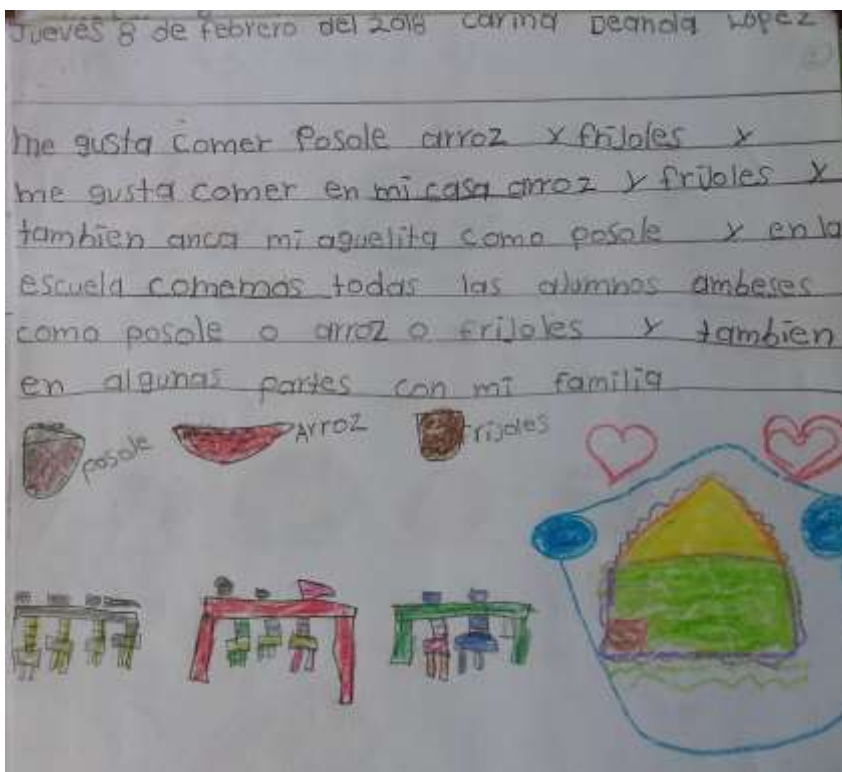 Jueves 8 de febrero del 2018 Carina Deanda Lopez
me gusta comer Posole arroz y frijoles y
me gusta comer en mi casa arroz y frijoles y
tambien anca mi aguelita como posole y en la
escuela comemos todas las alumnos ambeses
como posole o arroz o frijoles y tambien
en algunas partes con mi familia
posole Arroz frijoles